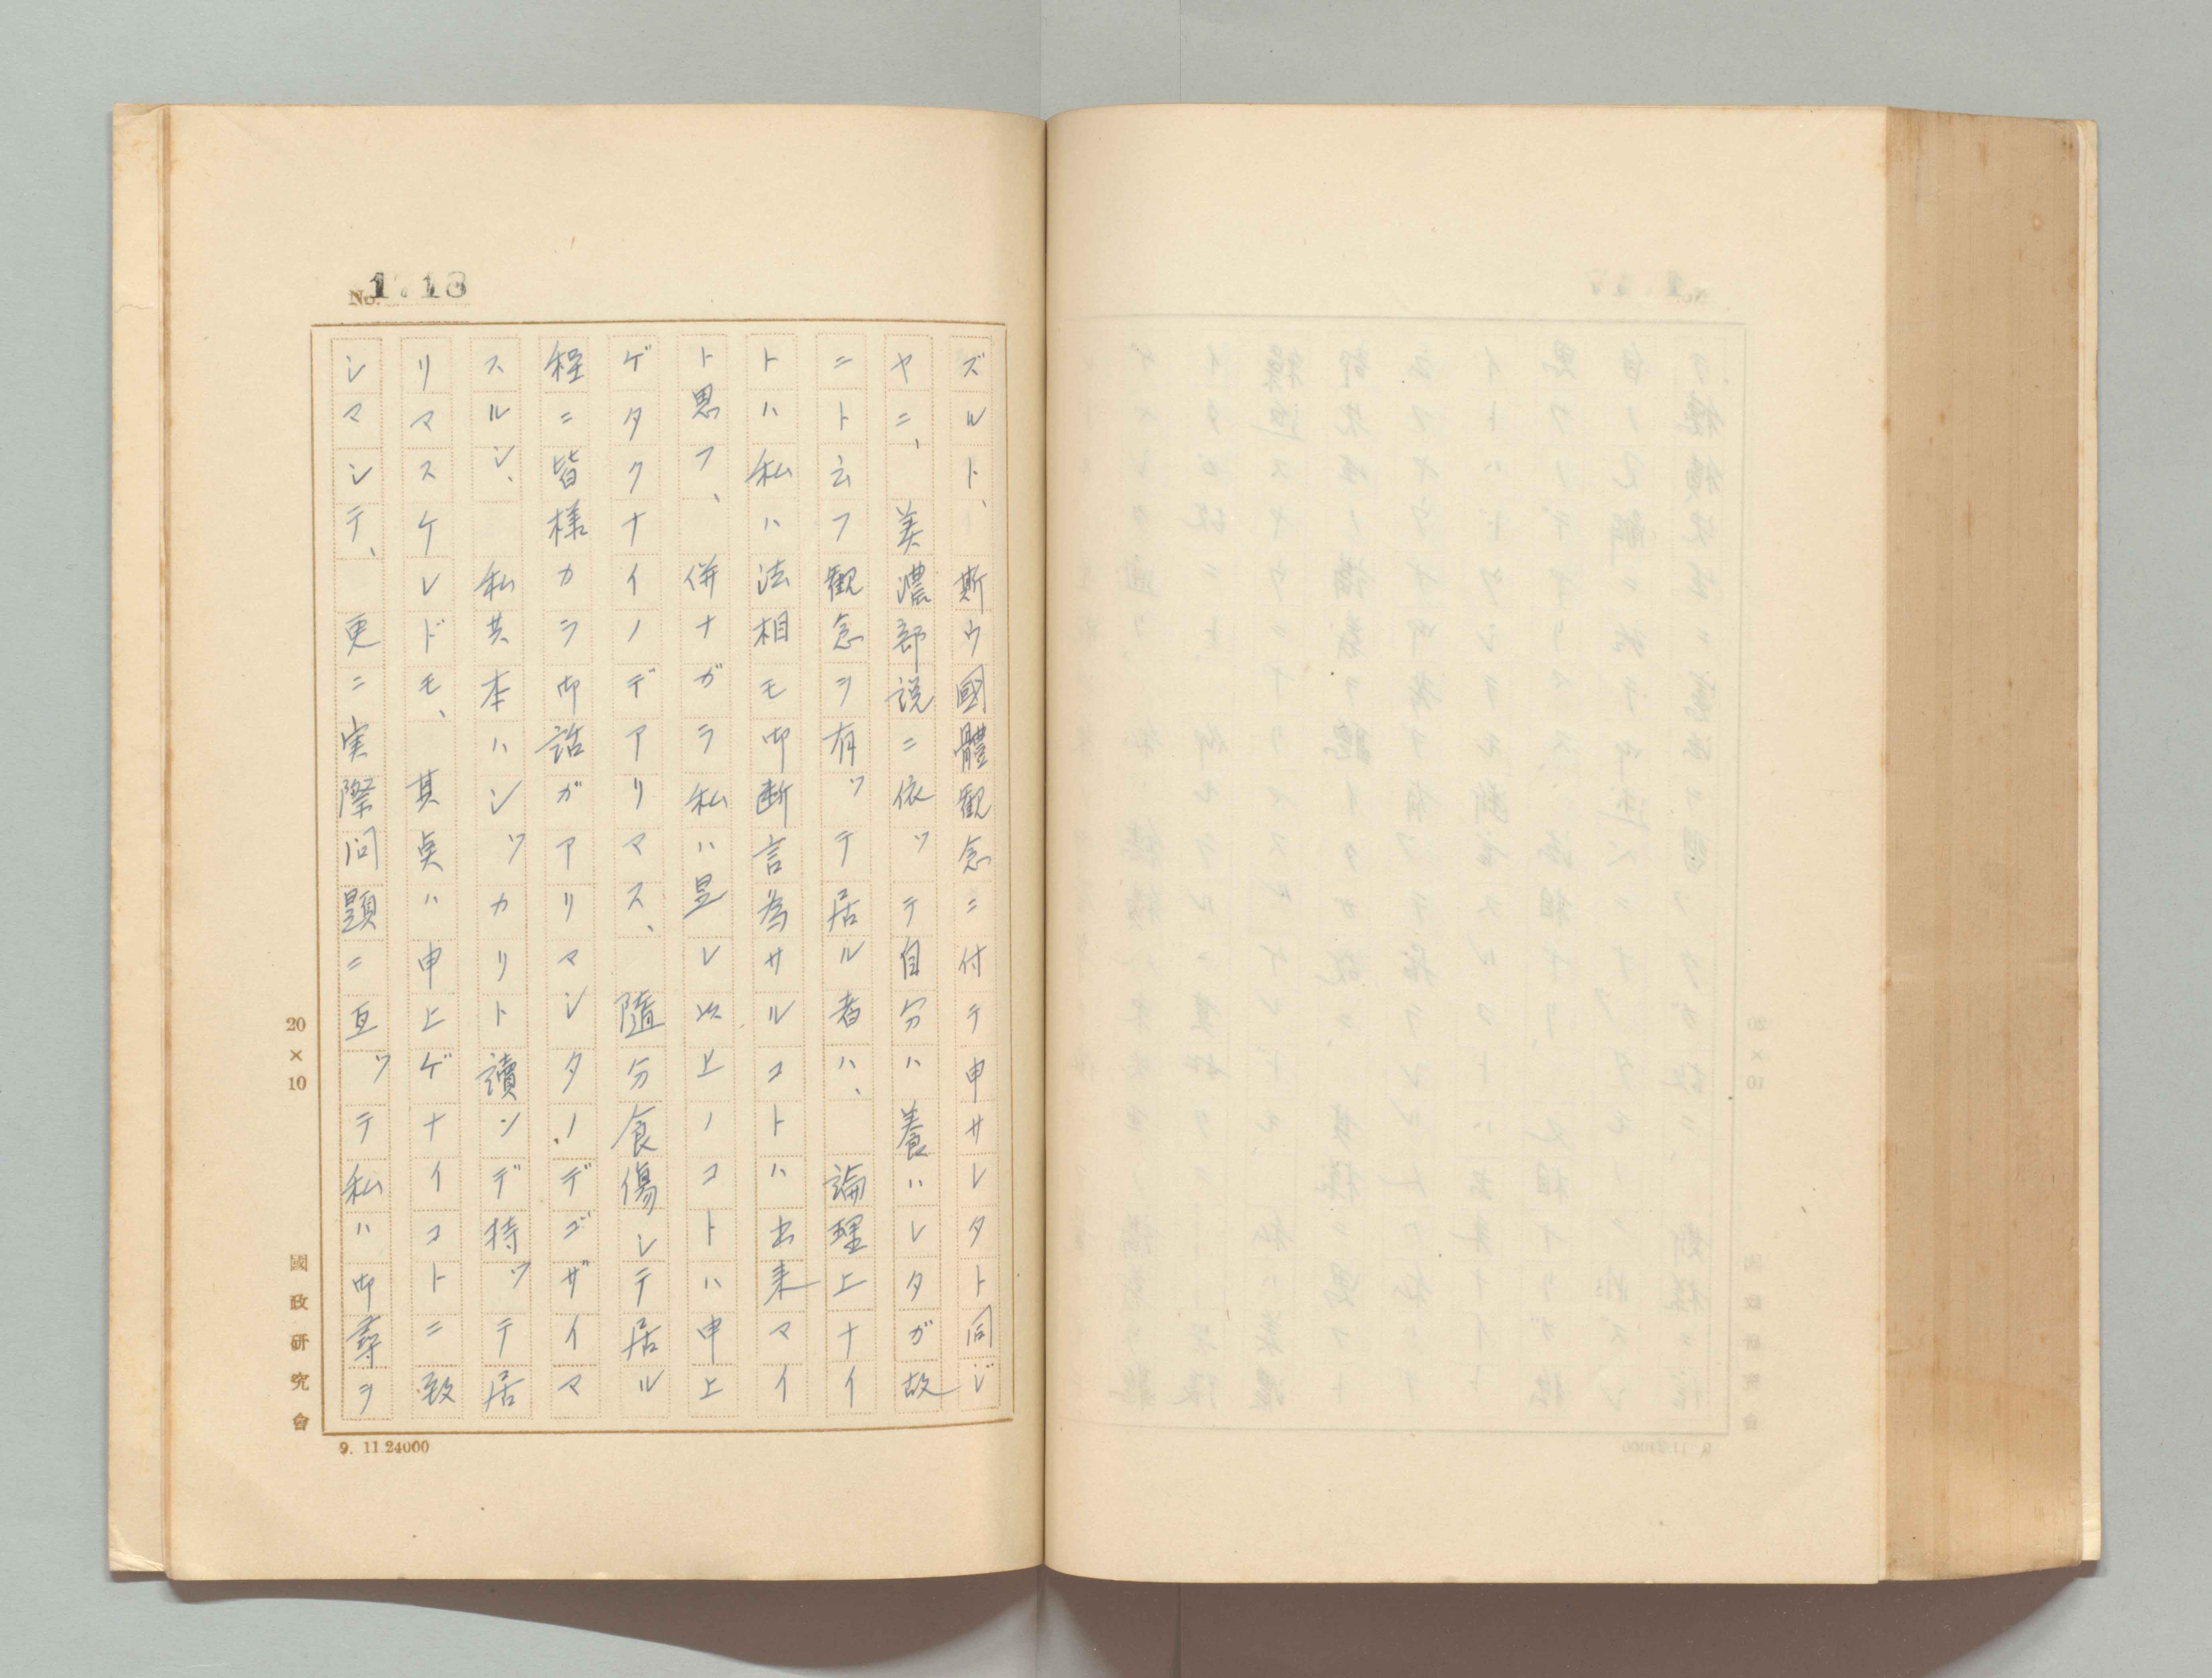 No. 1713
ズルト、斯ウ國體観念ニ付テ申サレタト同ジ
ヤニ、美濃部説ニ依ッテ自分ハ養ハレタガ故
ニト云フ観念ヲ有ッテ居ル者ハ、論理上ナイ
トハ私ハ法相モ御断言為サルコトハ出来マイ
ト思フ、併ナガラ私ハ是レ以上ノコトハ申上
ゲタクナイノデアリマス、随分食傷シテ居ル
程ニ皆様カラ御話ガアリマシタノデゴザイマ
スルシ、私共本ハシッカリト讀ンデ持ッテ居
リマスケレドモ、其奌ハ申上ゲナイコトニ致
シマシテ、更ニ実際問題ニ亙ッテ私ハ御尋ヲ
20×10
國政研究會
9. 11.24000